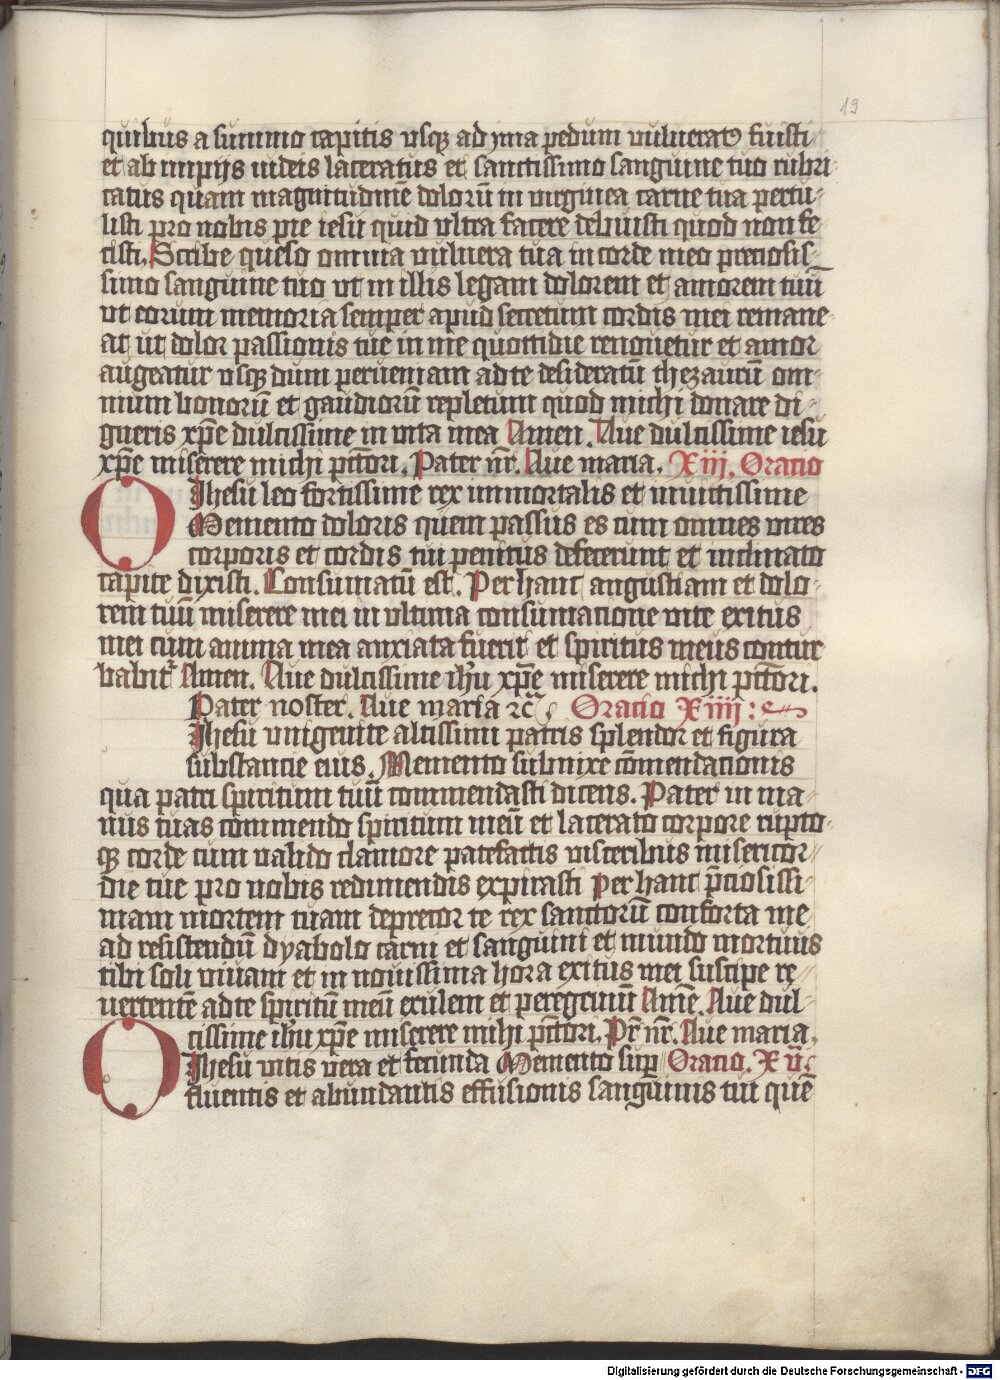 19
quibus a summo capitis vsqȝ ad yma pedum vulnerat9 fuisti
et ab impijs iudeis laceratus et sanctissimo sanguine tuo rubri-
catus quam magnitudinē dolorū in virginea carne tua pertu-
listi pro nobis pie iesu quid vltra facere debuisti quod non fe-
cisti. Scribe queso omnia vulnera tua in corde meo preciosis-
simo sanguine tuo vt in illis legam dolorem et amorem tuū
vt eorum memoria semper apud secretum cordis mei remane-
at ut dolor passionis tue in me quottidie renouetur et amor
augeatur vsqȝ dum perueniam ad te desideratū thezaurū om-
nium bonorū et gaudiorū repletum quod michi donare di-
gneris xpe dulcissime in vita mea Amen. Aue dulcissime iesu
xpe miserere michi pcctori. Pater nr̄. Aue maria. Xiij. Oratio
O Jhesu leo fortissime rex immortalis et inuictissime
Memento doloris quem passus es cum omnes vires
corporis et cordis tui penitus defecerunt et inclinato
capite dixisti. Consumatū est. Per hanc angustiam et dolo-
rem tuū miserere mei in vltima consumacione vite exitus
mei cum anima mea anxiata fuerit et spiritus meus contur-
babit᷑ Amen. Aue dulcissime ihu xpe miserere michi pcctori.
Pater noster. Aue maria ꝛc̄ Oratio Xiiij:
Jhesu vnigenite altissimi patris splendor et figura
substancie eius. Memento submixe cōmendationis
qua patri spiritum tuū commendasti dicens. Pater in ma-
nus tuas commendo spiritum meū et lacerato corpore rupto-
qȝ corde cum valido clamore patefactis visceribus misericor-
die tue pro nobis redimendis expirasti Per hanc p̄ciosissi-
mam mortem tuam deprecor te rex sanctorū conforta me
ad resistendū dyabolo carni et sanguini et mundo mortuus
tibi soli viuam et in nouissima hora exitus mei suscipe re-
uertentē ad te spiritū meū exulem et peregrinū Amē. Aue dul-
cissime ihu xpe miserere mihi pcctori. Pr̄ nr̄. Aue maria.
O Jhesu vitis vera et fecunda Memento sup Oratio. XV.
fluentis et abundantis effusionis sanguinis tui quē
Digitalisierung gefördert durch die Deutsche Forschungsgemeinschaft - DFG